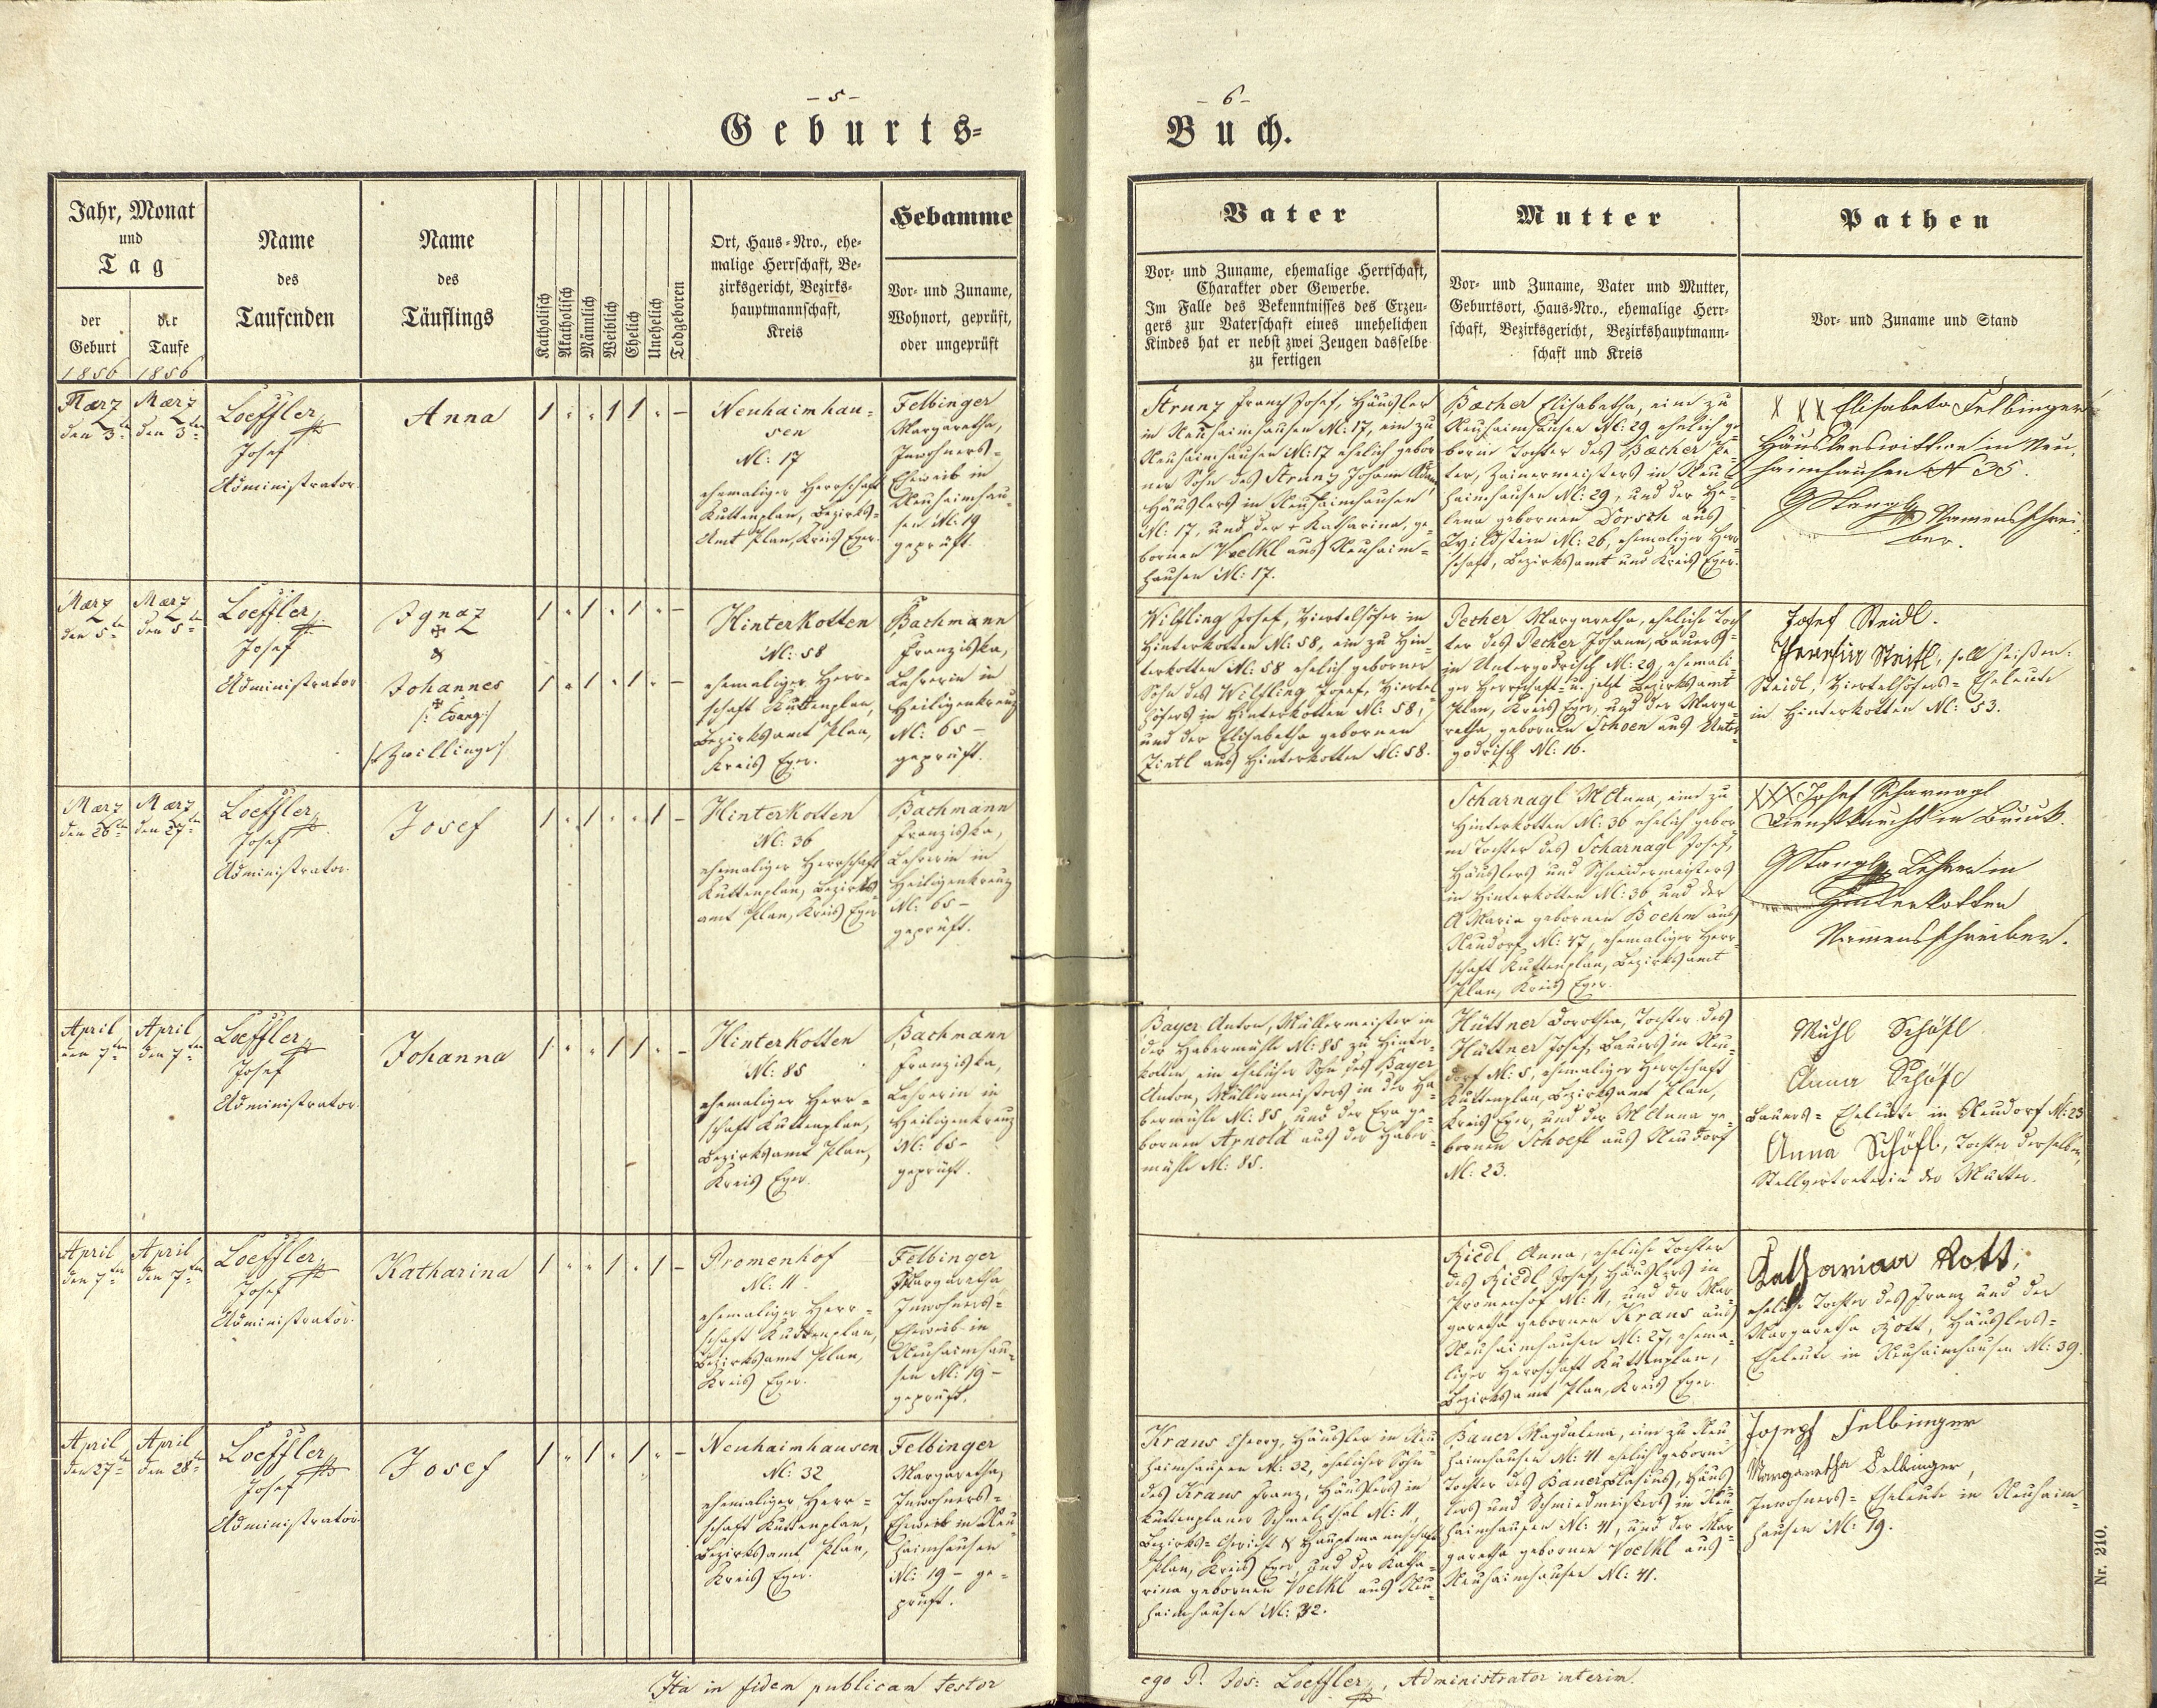 – 5 –
Geburts-
Jahr, Monat
und
Tag
der
Geburt
1856
der
Taufe
1856
Name
des
Taufenden
Name
des
Täuflings
Katholisch
Akatholisch
Männlich
Weiblich
Ehelich
Unehelich
Todgeboren
Ort, Haus-Nro., ehe-
malige Herrschaft, Be-
zirksgericht, Bezirks-
hauptmannschaft,
Kreis
Hebamme
Vor- und Zuname,
Wohnort, geprüft,
oder ungeprüft
März
den 3ten
März
den 3ten
Loeffler
Josef
Administrator
Anna
1 " " 1 1 " –
Neuhaimhau-
sen
N: 17
ehemaliger Herrschaft
Kuttenplan, Bezirks-
Amt Plan, Kreis Eger.
Felbinger
Margaretha,
Inwohners-
Eheweib in
Neuhaimhau-
sen N: 19
geprüft.
März
den 5ten
März
den 5ten
Loeffler
Josef
Administrator
Ignaz
&
Johannes
/: Evang:/
/:Zwillinge:/
1 " 1 " 1 " –
1 " 1 " 1 " –
Hinterkotten
N: 58
ehemaliger Herr-
schaft Kuttenplan,
Bezirksamt Plan,
Kreis Eger.
Bachmann
Franziska,
Lehrerin in
Heiligenkreuz
N: 65 –
geprüft.
März
den 26ten
März
den 27ten
Loeffler
Josef
Administrator.
Josef
1 " 1 " " 1 –
Hinterkotten
N: 36
ehemaliger Herrschaft
Kuttenplan, Bezirks-
amt Plan, Kreis Eger
Bachmann
Franziska,
Lehrerin in
Heiligenkreuz
N: 65 –
geprüft.
April
den 7ten
April
den 7ten
Loeffler
Josef
Administrator.
Johanna
1 " " 1 1 " –
Hinterkotten
N: 85
ehemaliger Herr-
schaft Kuttenplan,
Bezirksamt Plan,
Kreis Eger.
Bachmann
Franziska,
Lehrerin in
Heiligenkreuz
N: 65 –
geprüft.
April
den 7ten
April
den 7ten
Loeffler
Josef
Administrator.
Katharina
1 " " 1 " 1 –
Promenhof
N: 11.
ehemaliger Herr-
schaft Kuttenplan,
Bezirksamt Plan,
Kreis Eger.
Felbinger
Margaretha
Inwohners-
Eheweib in
Neuhaimhau-
sen N: 19 –
geprüft.
April
den 27ten
April
den 28ten
Loeffler
Josef
Administrator.
Josef
1 " 1 " 1 " –
Neuhaimhausen
N: 32
ehemaliger Herr-
schaft Kuttenplan,
Bezirksamt Plan,
Kreis Eger.
Felbinger
Margaretha,
Inwohners-
Eheweib in Neu-
haimhausen
N: 19 – ge-
prüft.
Ita in fidem publicam testor
– 6 –
Buch.
Vater
Vor- und Zuname, ehemalige Herrschaft,
Charakter oder Gewerbe.
Im Falle des Bekenntnisses des Erzeu-
gers zur Vaterschaft eines unehelichen
Kindes hat er nebst zwei Zeugen dasselbe
zu fertigen
Mutter
Vor- und Zuname, Vater und Mutter,
Geburtsort, Haus-Nro., ehemalige Herr-
schaft, Bezirksgericht, Bezirkshauptmann-
schaft und Kreis
Pathen
Vor- und Zuname und Stand
Strunz Franz Josef, Häusler
in Neuhaimhausen N: 17, ein zu
Neuhaimhausen N: 17 ehelich gebor
ner Sohn des Strunz Johann Adam
Häuslers in Neuhaimhausen
N: 17, und der Katharina, ge-
bornen Voelkl aus Neuhaim-
hausen N: 17.
Bacher Elisabetha, eine zu
Neuhaimhausen N: 29 ehelich ge
borne Tochter des Bacher Pe-
ter, Zainermeisters in Neu-
haimhausen N: 29, und der He-
lena gebornen Dorsch aus
Wildstein N: 26, ehemaliger Herr-
schaft, Bezirksamt und Kreis Eger.
XXX Elisabeta Felbinger
Häuslerswittwe in Neu-
haimhausen N 35
GStangl Namensschrei-
ber.
Wilfling Josef, Viertelhöfer in
Hinterkotten N: 58, ein zu Hin-
terkotten N: 58 ehelich geborner
Sohn des Wilfling Josef, Viertel
höfers in Hinterkotten N: 58,
und der Elisabetha gebornen
Zintl aus Hinterkotten N: 58.
Pecher Margaretha, eheliche Toch
ter des Pecher Johann, Bauers
in Untergodrisch N: 29, ehemali-
ger Herrschaft- u. jetzt Bezirksamt
Plan, Kreis Eger, und der Marga-
retha, gebornen Schoen aus Unter-
godrisch N: 16.
Josef Steidl.
Steitl, soll heißen:
Steidl, Viertelhöfers-Eheleute
in Hinterkotten N: 53.
Scharnagl M Anna, eine zu
Hinterkotten N: 36 ehelich gebor
ne Tochter des Scharnagl Josef,
Häuslers und Schneidermeisters
in Hinterkotten N: 36 und der
A Maria gebornen Boehm aus
Neudorf N: 47, ehemaliger Herr-
schaft Kuttenplan, Bezirksamt
Plan, Kreis Eger.
XXX Josef Scharnagl
Dienstknecht in Bruck.
GStangl Lehrer in
Hinterkotten
Namensschreiber.
Bayer Anton, Müllermeister in
der Habermühle N: 85 zu Hinter-
kotten, ein ehelicher Sohn des Bayer
Anton, Müllermeisters in der Ha-
bermühle N: 85, und der Eva ge-
bornen Arnold aus der Haber-
mühle N: 85.
Hüttner Dorothea, Tochter des
Hüttner Josef, Bauers in Neu-
dorf N: 5, ehemaliger Herrschaft
Kuttenplan, Bezirksamt Plan,
Kreis Eger, und der M Anna ge-
bornen Schoefl aus Neudorf
N: 23.
Schöfl
Anna Schöfl
Bauers-Eheleute in Neudorf N: 23
Anna Schöfl, Tochter derselben,
Stellvertreterin der Mutter.
Riedl Anna, eheliche Tochter
des Riedl Josef, Häuslers in
Promenhof N: 11, und der Mar-
garetha gebornen Kraus aus
Neuhaimhausen N: 27, ehema-
liger Herrschaft Kuttenplan,
Bezirksamt Plan, Kreis Eger.
Rott,
eheliche Tochter des Franz und der
Margaretha Rott, Häuslers-
Eheleute in Neuhaimhausen N: 39.
Kraus Georg, Häusler in Neu
haimhausen N: 32, ehelicher Sohn
des Kraus Franz, Häuslers in
Kuttenplaner Schmelzthal N: 11,
Bezirks-Gericht & Hauptmannschaft
Plan, Kreis Eger, und der Katha-
rina gebornen Voelkl aus Neu-
haimhausen N: 32.
Bauer Magdalena, eine zu Neu
haimhausen N: 41 ehelich geborne
Tochter des Bauer Blasius, Häus-
lers und Schmiedmeisters in Neu
haimhausen N: 41, und der Mar-
garetha gebornen Voelkl aus
Neuhaimhausen N: 41.
Joseph Felbinger
Margaretha Felbinger,
Inwohners-Eheleute in Neuhaim-
hausen N: 19.
ego P. Jos: Loeffler, Administrator interim.
Nr. 210.